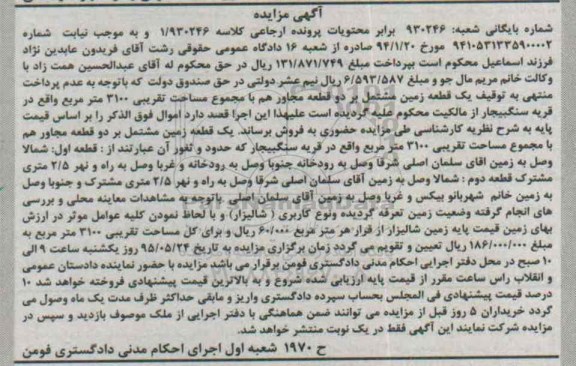 آگهی مزایده
شماره بایگانی شعبه: ۹۳۰۲۴۶ برابر محتویات پرونده ارجاعی کلاسه ۱/۹۳۰۲۴۶ و به موجب نیابت شماره
۹۴۱۰۵۳۱۳۳۵۹۰۰۰۰۲ مورخ ۹۴/۱/۲۰ صادره از شعبه ۱۶ دادگاه عمومی حقوقی رشت آقای فریدون عابدین نژاد
فرزند اسماعیل محکوم است بپرداخت مبلغ ۱۳۱/۸۷۱/۷۴۹ ریال در حق محکوم له آقای عبدالحسین همت زاد با
وکالت خانم مریم مال جو و مبلغ ۶/۵۹۳/۵۸۷ ریال نیم عشر دولتی در حق صندوق دولت که باتوجه به عدم پرداخت
منتهی به توقیف یک قطعه زمین مشتمل بر دو قطعه مجاور هم با مجموع مساحت تقریبی ۳۱۰۰ متر مربع واقع در
قریه سنگبیجار از مالکیت محکوم علیه گردیده است علیهذا این اجرا قصد دارد اموال فوق الذکر را بر اساس قیمت
پایه به شرح نظریه کارشناسی طی مزایده حضوری به فروش برساند. یک قطعه زمین مشتمل بر دو قطعه مجاور هم
با مجموع مساحت تقریبی ۳۱۰۰ متر مربع واقع در قریه سنگبیجار که حدود و ثغور آن عبارتند از : قطعه اول: شمالا
وصل به زمین اقای سلمان اصلی شرقا وصل به رودخانه جنوبا وصل به رودخانه و غربا وصل به راه و نهر ۲/۵ متری
مشترک قطعه دوم : شمالا وصل به زمین آقای سلمان اصلی شرقا وصل به راه و نهر ۲/۵ متری مشترک و جنوبا وصل
به زمین خانم شهربانو بیکس و غربا وصل به زمین آقای سلمان اصلی باتوجه به مشاهدات معاینه محلی و بررسی
های انجام گرفته وضعیت زمین تعرفه گردیده ونوع کاربری ( شالیزار) و با لحاظ نمودن کلیه عوامل موثر در ارزش
بهای زمین قیمت پایه زمین شالیزار از قرار هر متر مربع ۶۰/۰۰۰ ریال و برای کل مساحت تقریبی ۳۱۰۰ متر مربع به
مبلغ ۱۸۶/۰۰۰/۰۰۰ ریال تعیین و تقویم می گردد زمان برگزاری مزایده به تاریخ ۹۵/۰۵/۲۴ روز یکشنبه ساعت ۹ الی
۱۰ صبح در محل دفتر اجرایی احکام مدنی دادگستری فومن برقرار می باشد مزایده با حضور نماینده دادستان عمومی
و انقلاب راس ساعت مقرر از قیمت پایه ارزیابی شده شروع و به بالاترین قیمت پیشنهادی فروخته خواهد شد ۱۰
درصد قیمت پیشنهادی فی المجلس بحساب سپرده دادگستری واریز و مابقی حداکثر ظرف مدت یک ماه وصول می
گردد خریداران ۵ روز قبل از مزایده می توانند ضمن هماهنگی با دفتر اجرایی از ملک موصوف بازدید و سپس در
مزایده شرکت نمایند این آگهی فقط در یک نوبت منتشر خواهد شد.
ح ۱۹۷۰ شعبه اول اجرای احکام مدنی دادگستری فومن